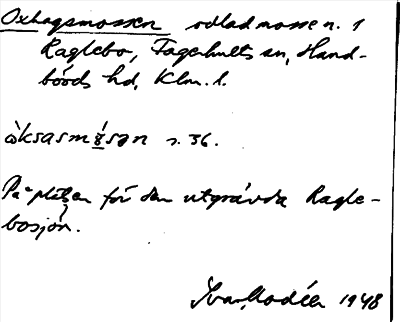 Oxhagsmossen odlad mosse n. 1
Raglebo, Fagerhults sn, Hand-
börds hd, Klm. l.
òksasmósən s. 36.
På platsen för den utgrävda Ragle-
bosjön.
Ivar Modéer 1948